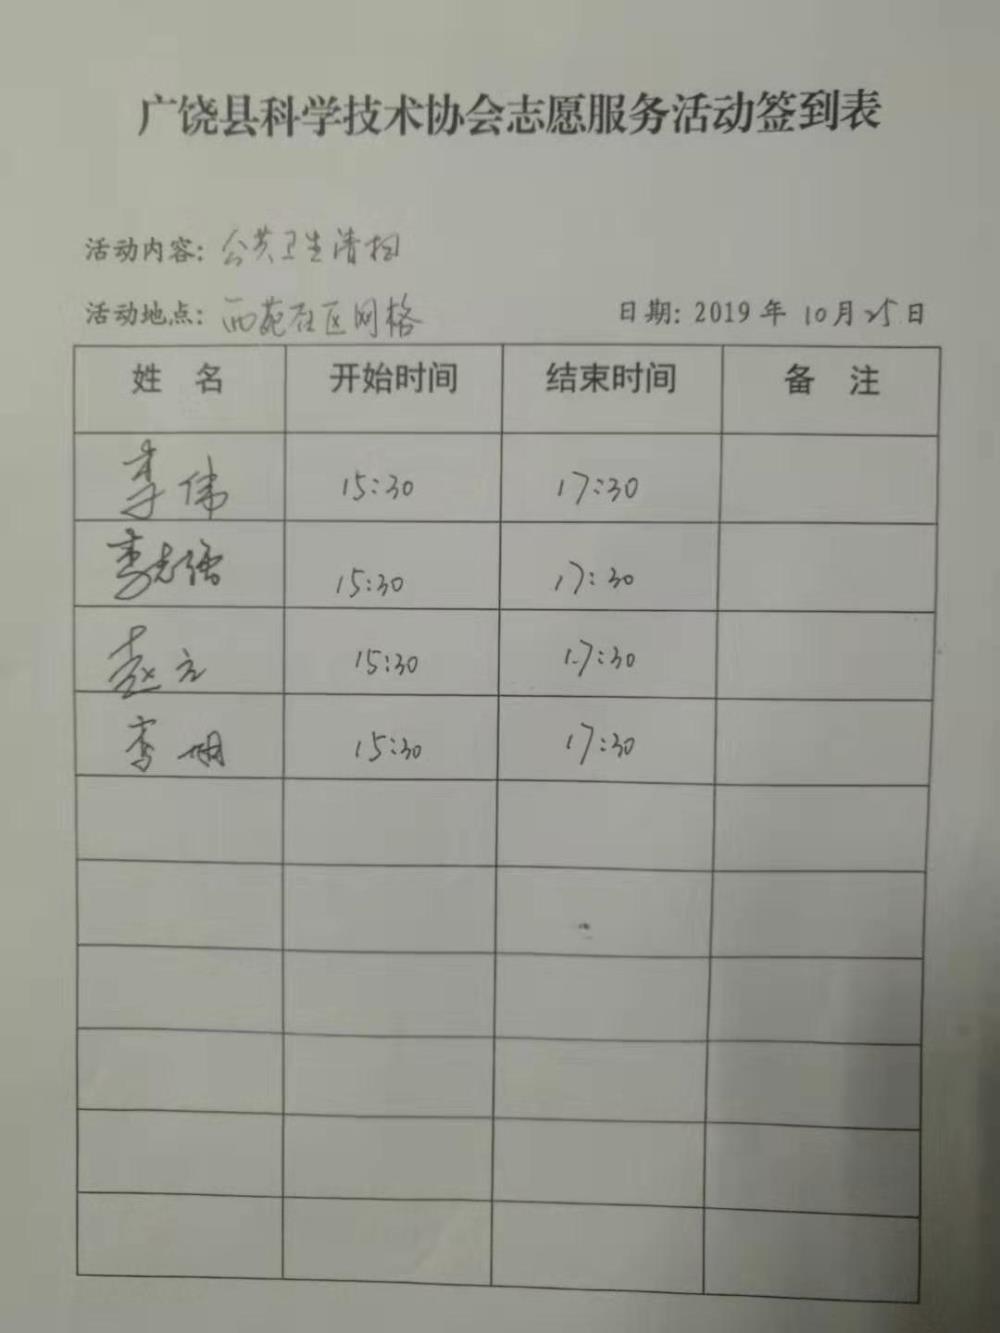 广饶县科学技术协会志愿服务活动签到表
活动内容: 公共卫生清扫
活动地点: 西苑社区网格 日期: 2019年10月25日
姓 名 开始时间 结束时间 备 注
李伟 15:30 17:30
李志强 15:30 17:30
赵 15:30 17:30
15:30 17:30